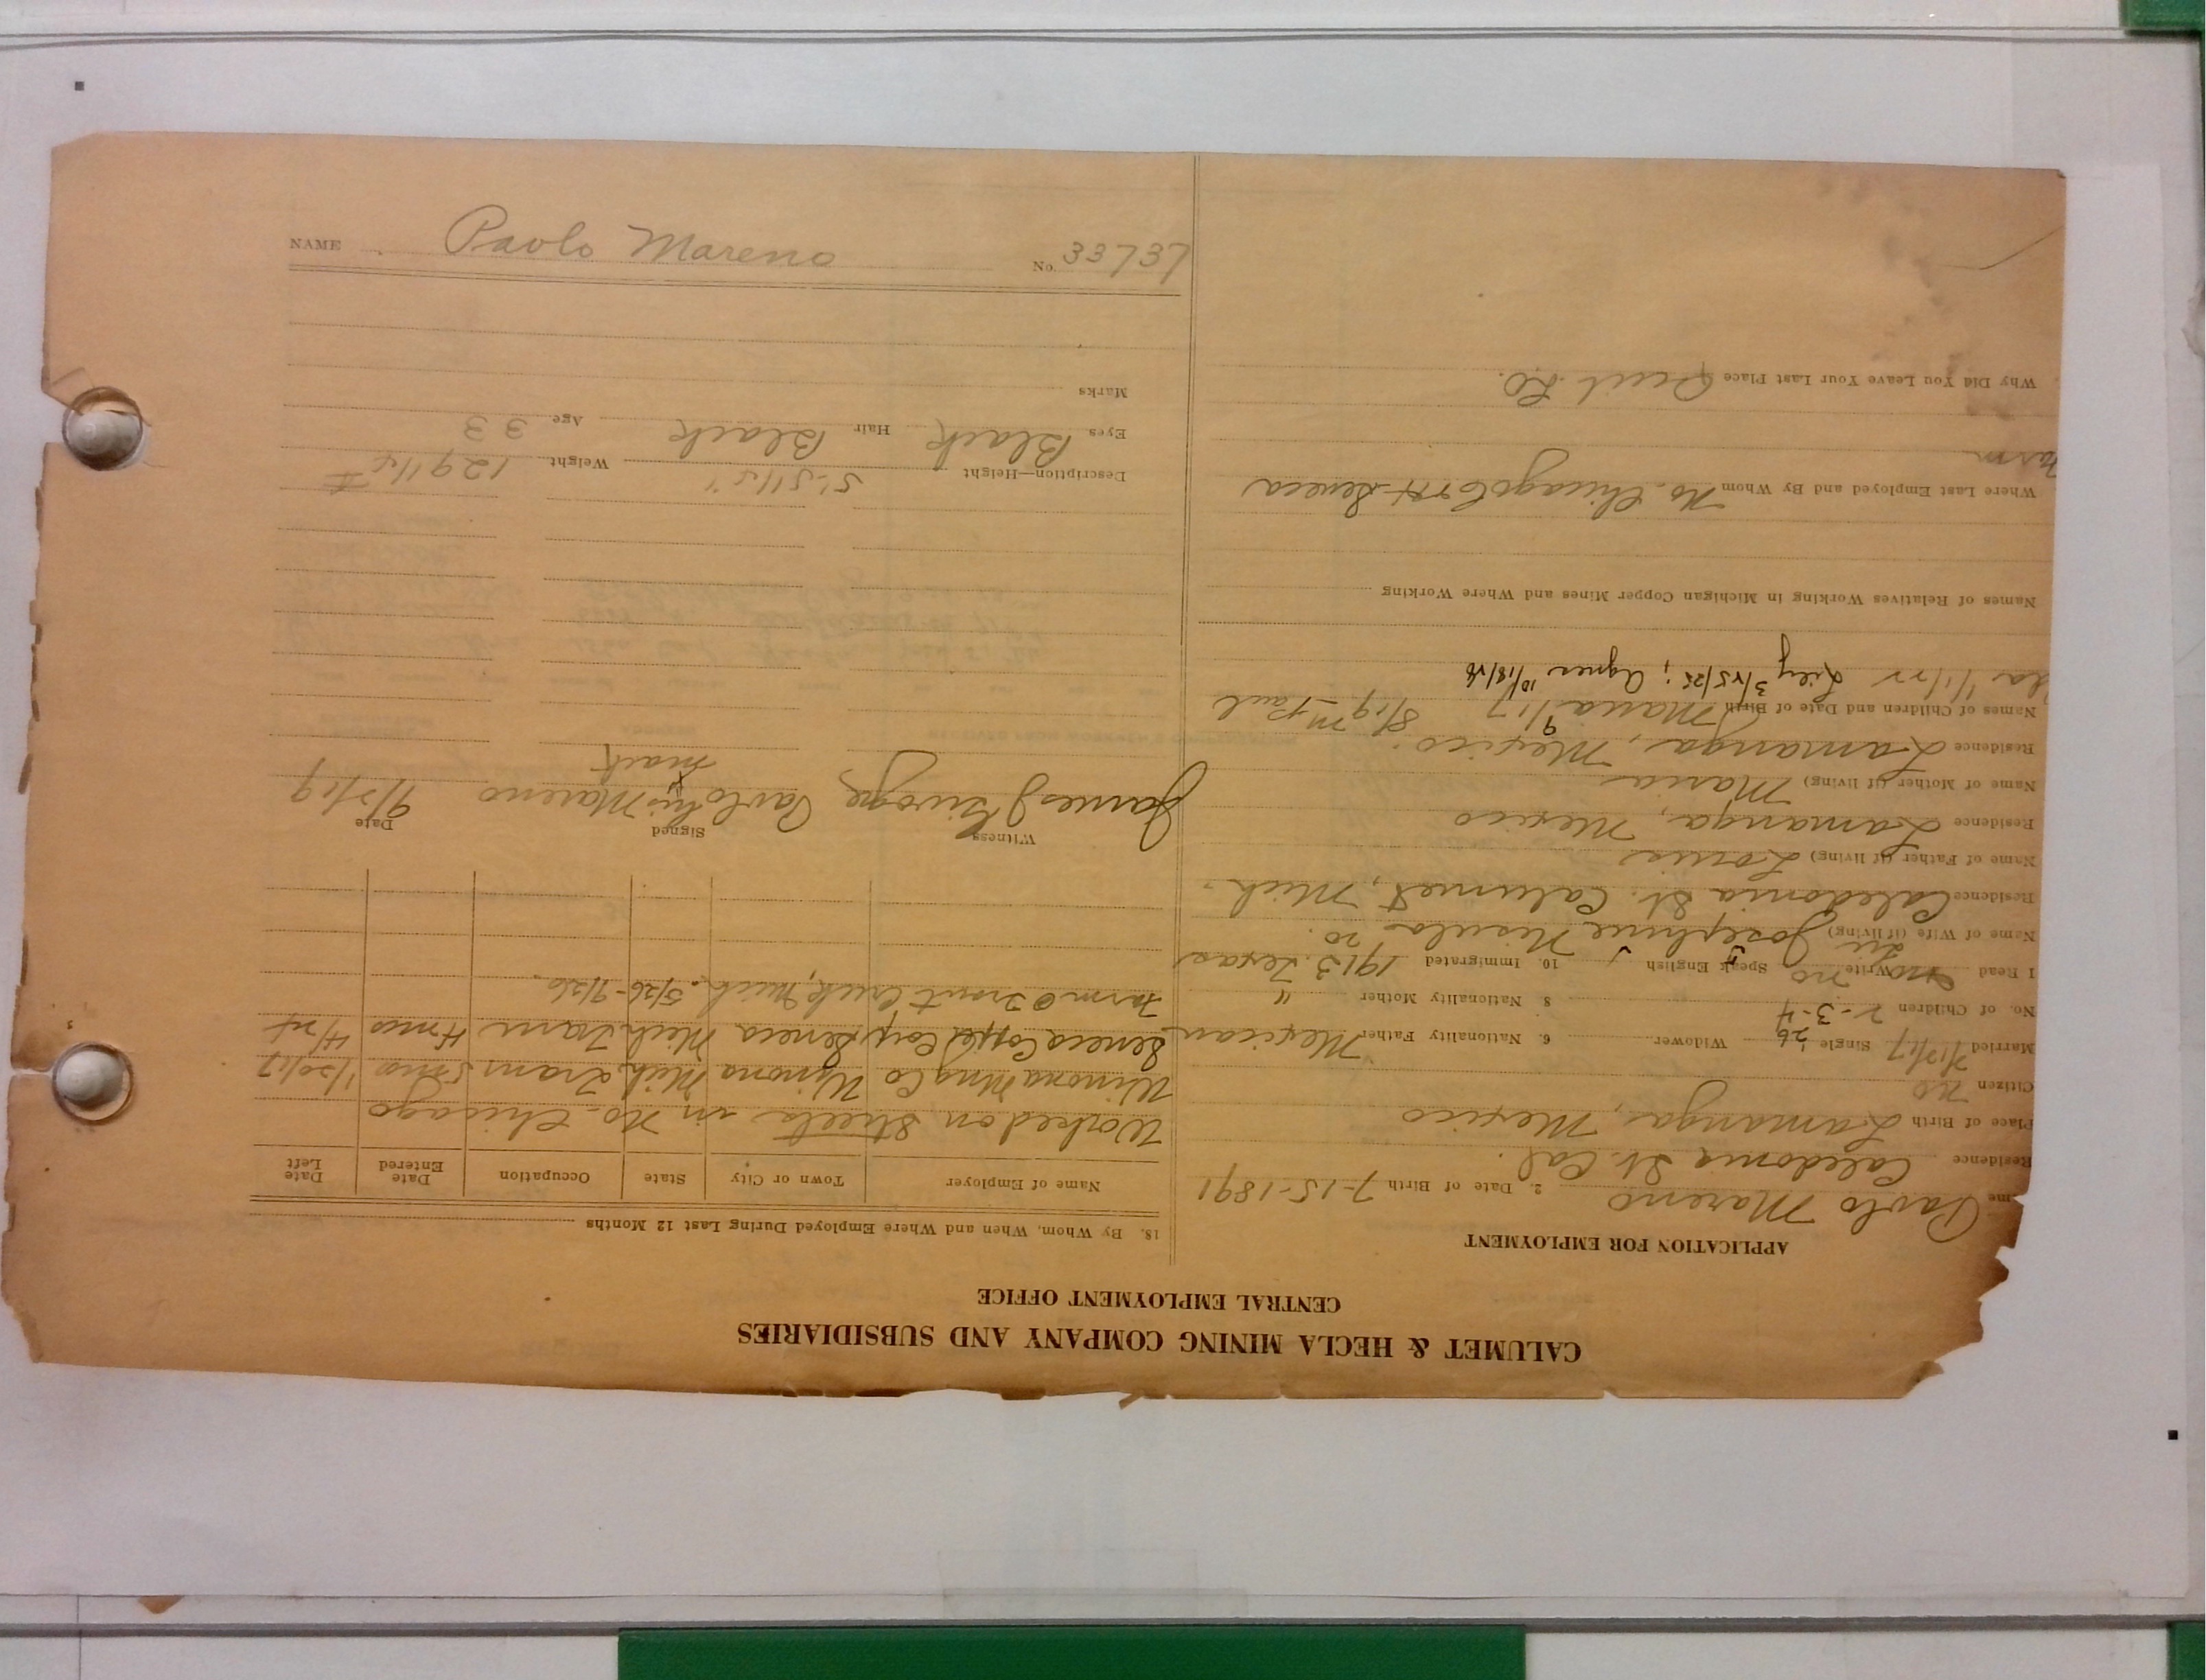 CALUMET & HECLA MINING COMPANY AND SUBSIDIARIES
CENTRAL EMPLOYMENT OFFICE
APPLICATION FOR EMPLOYMENT
me Pavlo Mareno 2. Date of Birth 7-15-1891
Residence Caledonia St. Cal.
Place of Birth Lamanga, Mexico
Citizen no
Married 7/17/17 Single 26 Widower 6. Nationality Father Mexican
No. of Children 2-3-4 8 Nationality Mother "
I Read no Write no Speak English 10. Immigrated 1913 Texas
Name of Wife (if living) Josephine Nisula 20.
Residence Caledonia St. Calumet, Mich.
Name of Father (if living) Louie
Residence Lamanga, Mexico
Name of Mother (if living) Maria
Residence Lamanga, Mexico.
Names of Children and Date of Birth Maria 9/17 8/19 Paul
1/1/22 Lily 3/25/25; Agnes 10/18/26
Names of Relatives Working in Michigan Copper Mines and Where Working
Where Last Employed and By Whom No. Chicago Seneca
Farm
Why Did You Leave Your Last Place Quit L.O.
18. By Whom, When and Where Employed During Last 12 Months
Name of Employer Town or City State Occupation Date Entered Date Left
Worked on Streets in No. Chicago
Winona Mng Co Winona Mich. Tram 5 mos 1/20/17
Seneca Copper Corp Seneca Mich Tram 4 mos 4/24
Farm @ Trout Creek, Mich. 5/26-9/26.
Witness Signed Date
James J Pavlo his x Mareno 9/2/19
mark
Description—Height 5'-5 1/2" Weight 129 1/2 #
Eyes Black Hair Black Age 33
Marks
NAME Pavlo Mareno No. 33737